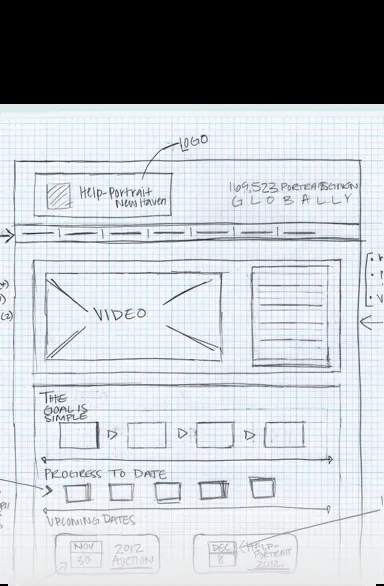 LOGO
Help-Portrait
New Haven
169,523 PORTRAITS GIVEN
GLOBALLY
VIDEO
THE
GOAL IS
SIMPLE
PROGRESS TO DATE
UPCOMING DATES
NOV
30
2012
AUCTION
DEC
8
HELP-
PORTRAIT
2012
(2)